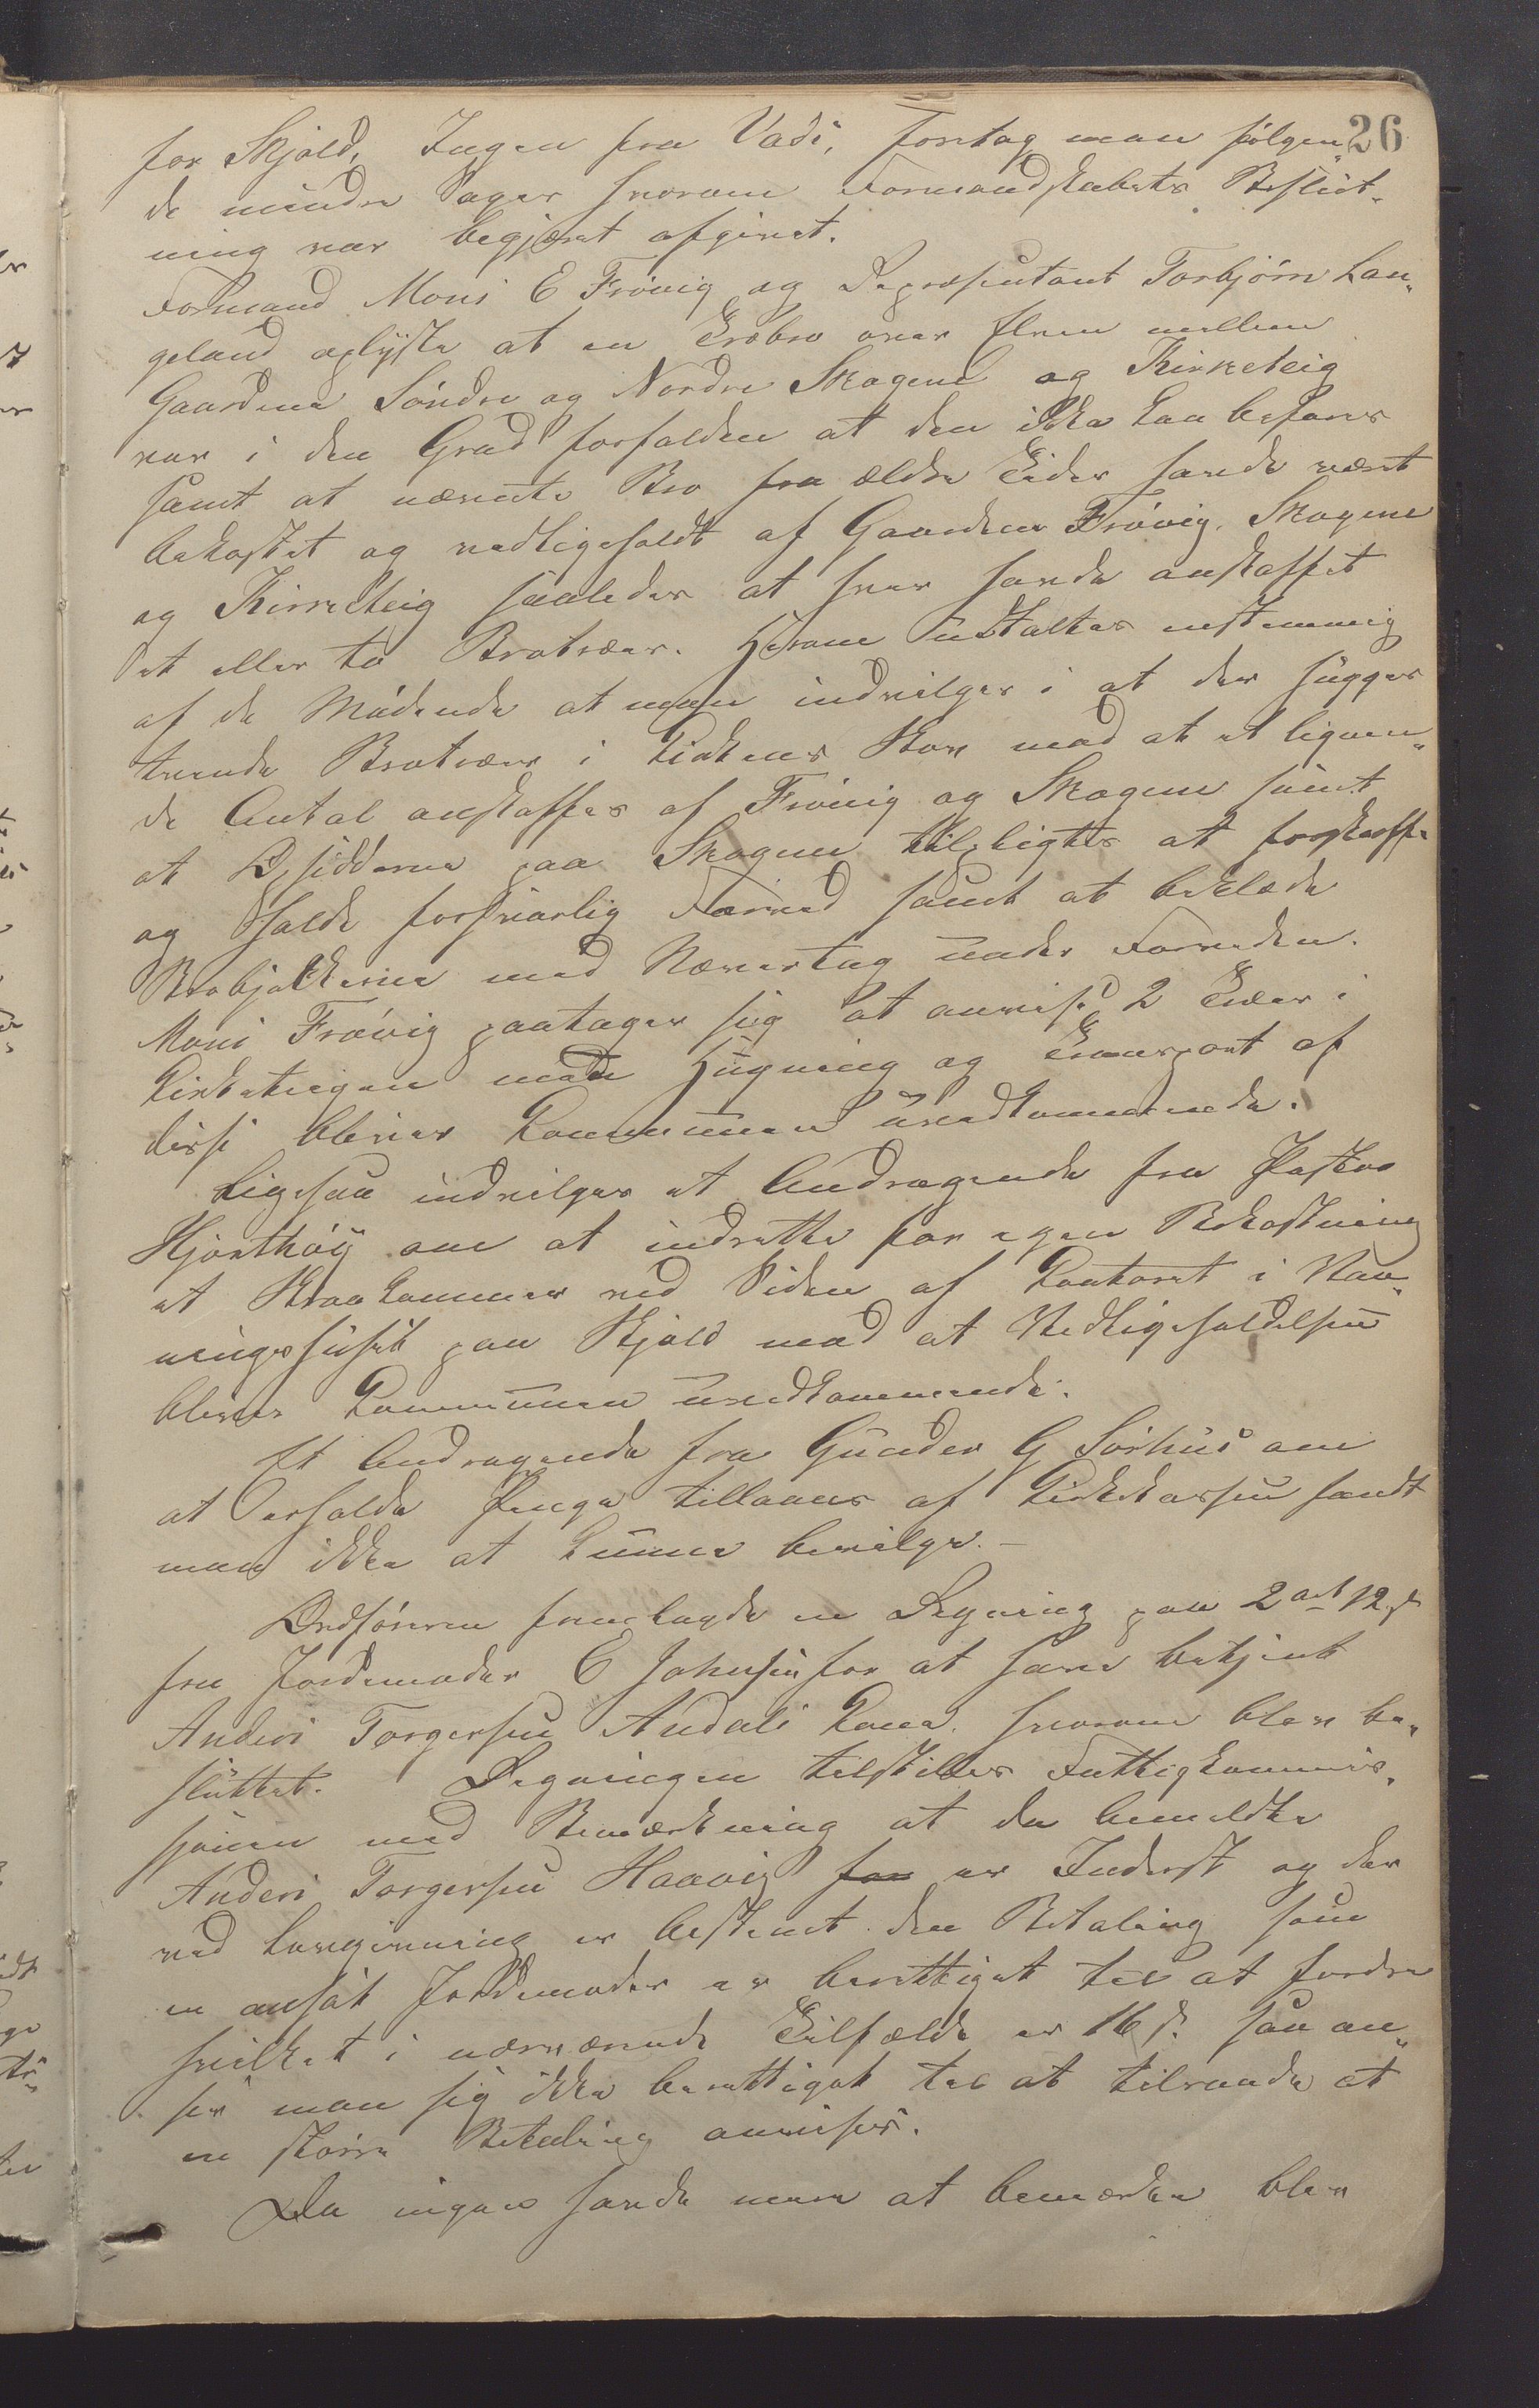 26
for Skjold, Ingen fra Vats, foretog man følgen„
de mindre Sager hvorom Formandskabets Beslut„
ning var begjæret afgivet.
Formand Mons E Frøvig og Repræsentant Torbjørn Lan„
geland oplyste at en Træbro over Elven mellem
Gaardene Søndre og Nordre Skogene og Kirketeig
var i den Grad forfalden at den ikke kan befares
samt at nævnte Bro fra ældre Tider havde været
bekostet og vedligeholdt af Gaardene Frøvig, Skogene
og Kirketeig saaledes at hver havde anskaffet
et eller to Brotræer. Herom udtaltes enstemmig
af de Mødende at man indvilger i at der hugges
trende Brotræer i Kirkens Skov mod at et lignen„
de Antal anskaffes af Frøvig og Skogene samt
at Opsidderne paa Skogene tilpligtes at forskaffe
og holde forsvarlig Farved samt at beklæde
Brobjelkerne med Nævertag under Farveden.
Mons Frøvig paatager sig at anvise 2 Træer i
Kirketeigen men Hugning og Transport af
disse bliver Kommunen uvedkommende.
Ligesaa indvilges et Andragende fra Pastor
Hjorthøy om at indrette for egen Bekostning
et Kammer ved Siden af Kontoret i Vaa„
ningshuset paa Skjold mod at Vedligeholdelsen
bliver Kommunen uvedkommende.
Et Andragende fra Gunder G Sørhus om
at erholde Penge tillaans af Kirkekassen fandt
man ikke at kunne bevilge. —
Ordføreren fremlagde en Regning paa 2 ort 12 s
fra Jordemoder E Johnsen for at have betjent
Anders Torgersen Andals Kone. hvorom blev be„
sluttet. Regningen tilstilles Fattigkommis„
sjonen med Bemærkning at da bemeldte
Anders Torgersen Haavig for er Inderst og der
ved Lovgivning er bestemt den Betaling som
en ansat Jordemoder er berettiget til at fordre
hvilket i nærværende Tilfælde er 16 s. saa an„
ser man sig ikke berettiget til at tilraade at
en større Betaling anvises.
Da ingen havde mere at bemærke blev